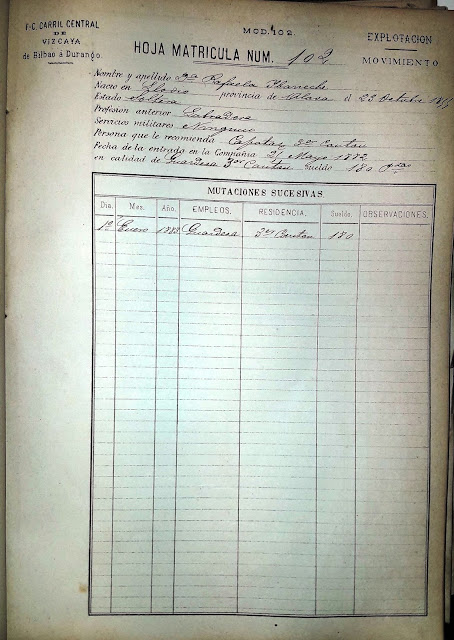 F-C. CARRIL CENTRAL
DE
VIZCAYA
de Bilbao á Durango.
MOD. 102.
EXPLOTACION
MOVIMIENTO
HOJA MATRICULA NUM. 102
Nombre y apellido Dª Rafaela
Nació en Llodio provincia de Alava el 23 Octubre
Estado Soltera
Profesión anterior Labradora
Servicios militares Ninguno
Persona que le recomienda Capataz 3er Canton
Fecha de la entrada en la Compañia Mayo 1882
en calidad de Guardesa 3er Canton Sueldo 180 ptas
MUTACIONES SUCESIVAS.
Dia. Mes. Año. EMPLEOS. RESIDENCIA. Sueldo. OBSERVACIONES.
1º Enero 1883 Guardesa 3er Canton 180